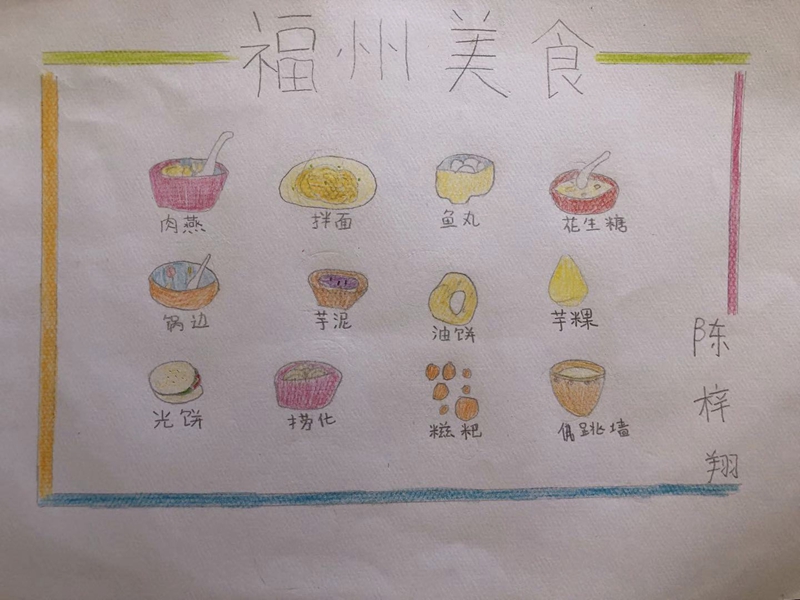 福州美食
肉燕 拌面 鱼丸 花生糖
锅边 芋泥 油饼 芋粿
光饼 捞化 糍粑 佛跳墙
陈梓翔